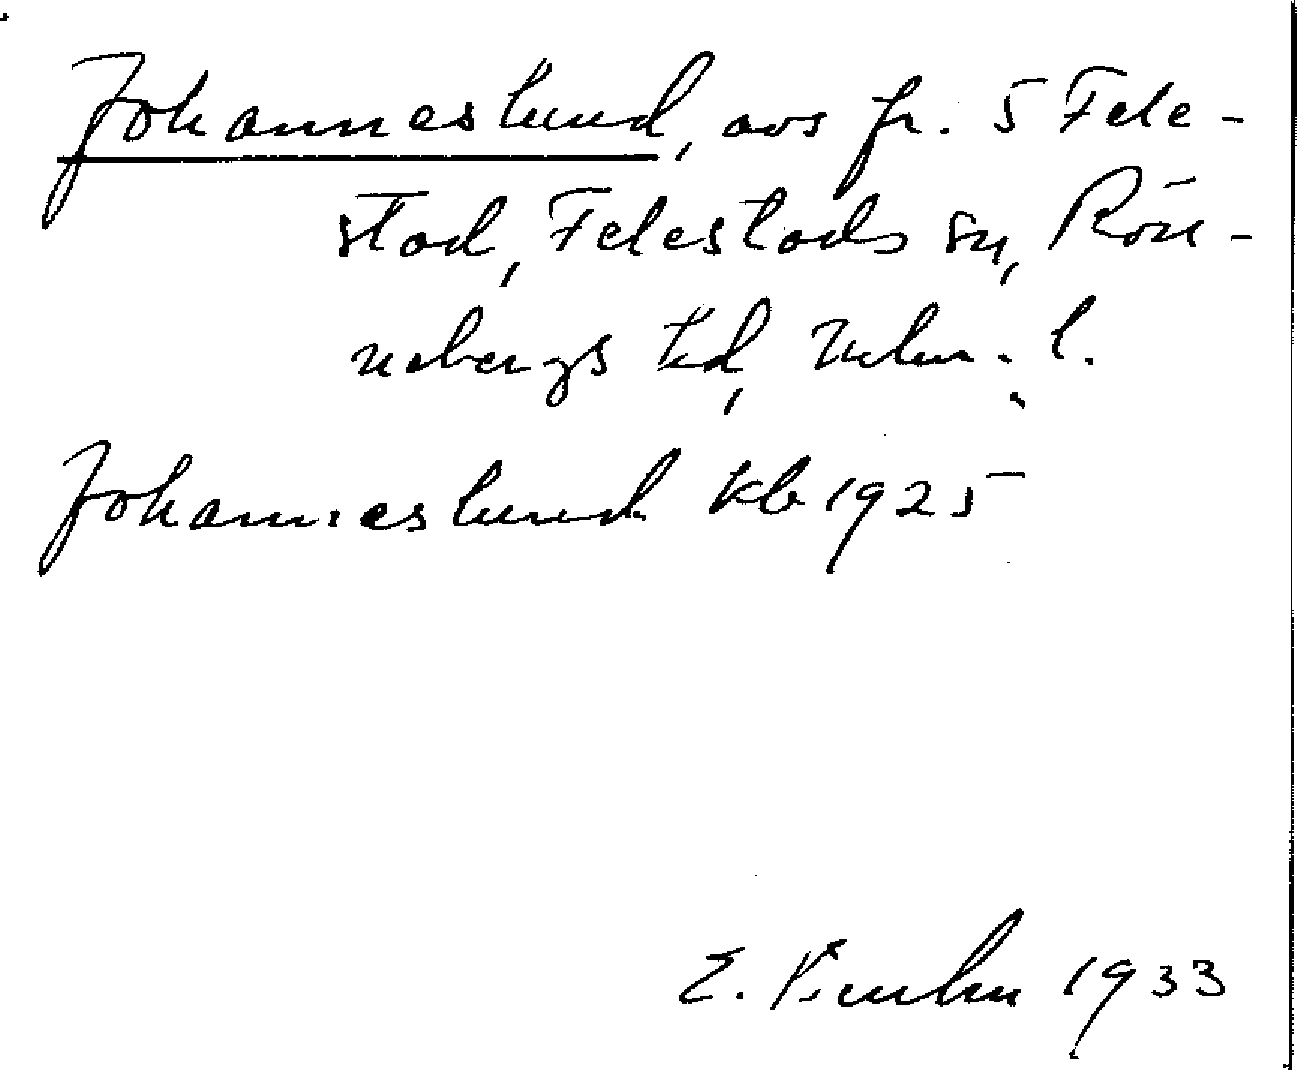 Johanneslund, avs fr. 5 Fele-
stad, Felestads sn, Rön-
nebergs hd, Mlm. l.
Johanneslund Kb 1925
E. 1933